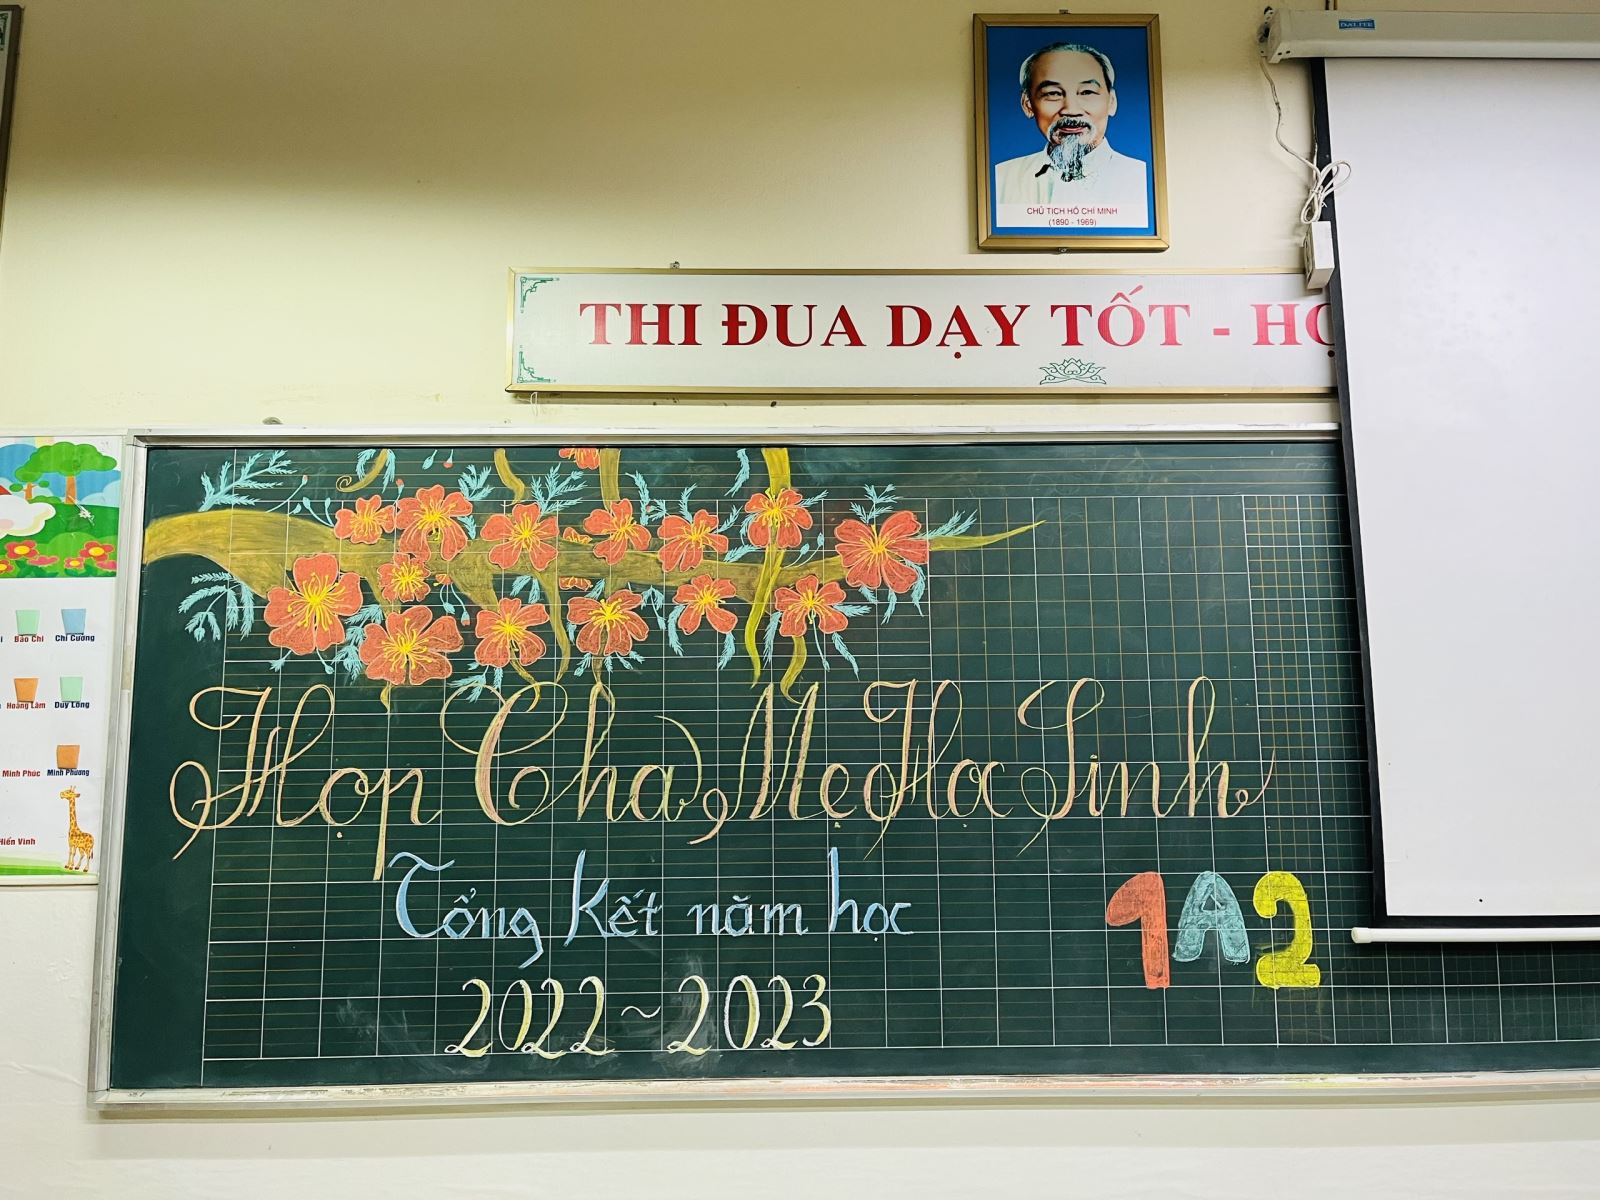 DALITE
CHỦ TỊCH HỒ CHÍ MINH
(1890 - 1969)
THI ĐUA DẠY TỐT - HỌ
Bảo Chi
Chí Cường
Hoàng Lâm
Duy Long
Minh Phúc
Minh Phương
Hiển Vinh
Họp Cha Mẹ Học Sinh
Tổng kết năm học
1A2
2022~2023